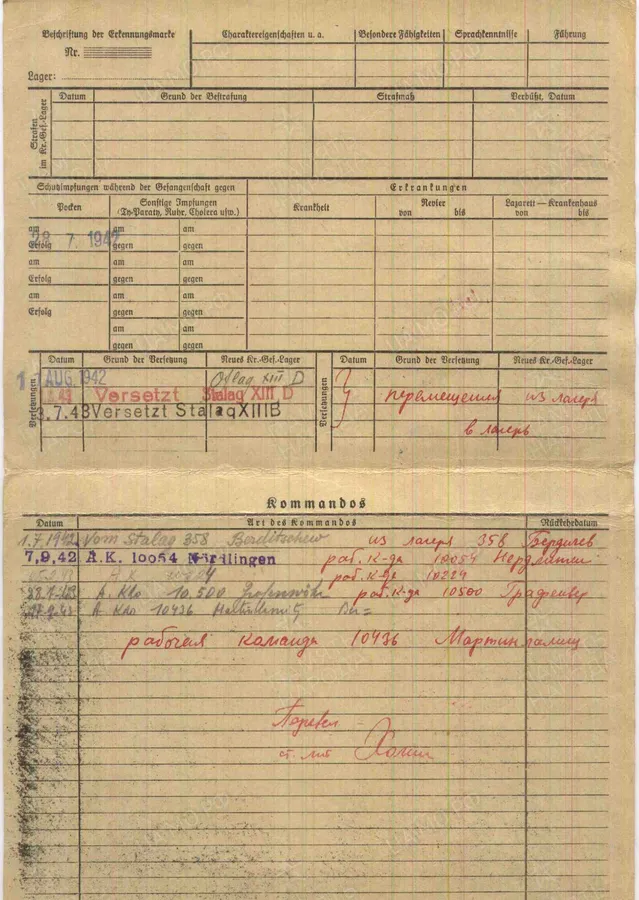 Beschriftung der Erkennungsmarke
Charaktereigenschaften u. a.
Besondere Fähigkeiten
Sprachkenntnisse
Führung
Nr.
Lager:
Strafen im Kr.-Gef.-Lager
Datum
Grund der Bestrafung
Strafmaß
Verbüßt, Datum
Schutzimpfungen während der Gefangenschaft gegen
Erkrankungen
Pocken
Sonstige Impfungen
(Ty-Paraty, Ruhr, Cholera usw.)
Krankheit
Revier
von bis
Lazarett — Krankenhaus
von bis
am am am
28. 7. 1942
Erfolg gegen gegen
am am am
Erfolg gegen gegen
am am am
Erfolg gegen gegen
am am
gegen gegen
Versetzungen
Datum
Grund der Versetzung
Neues Kr.-Gef.-Lager
Versetzungen
Datum
Grund der Versetzung
Neues Kr.-Gef.-Lager
AUG. 1942 Oflag XIII D
Versetzt Stalag XIII D
.7.43 Versetzt Stalag XIII B
перемещения из лагеря
в лагерь
Kommandos
Datum
Art des Kommandos
Rückkehrdatum
1.7.1942 Vom Stalag 358 Berditschew из лагеря 358 Бердичев
7.9.42 A.K. 10054 Nördlingen раб. к-да
A.K. раб. к-да 10224
A. Kdo 10.500 раб. к-да 10500
A Kdo 10436
рабочая команда 10436
Перевел
ст. лит